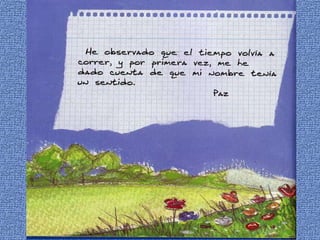 He observado que el tiempo volvía a
correr, y por primera vez, me he
dado cuenta de que mi nombre tenía
un sentido.
Paz